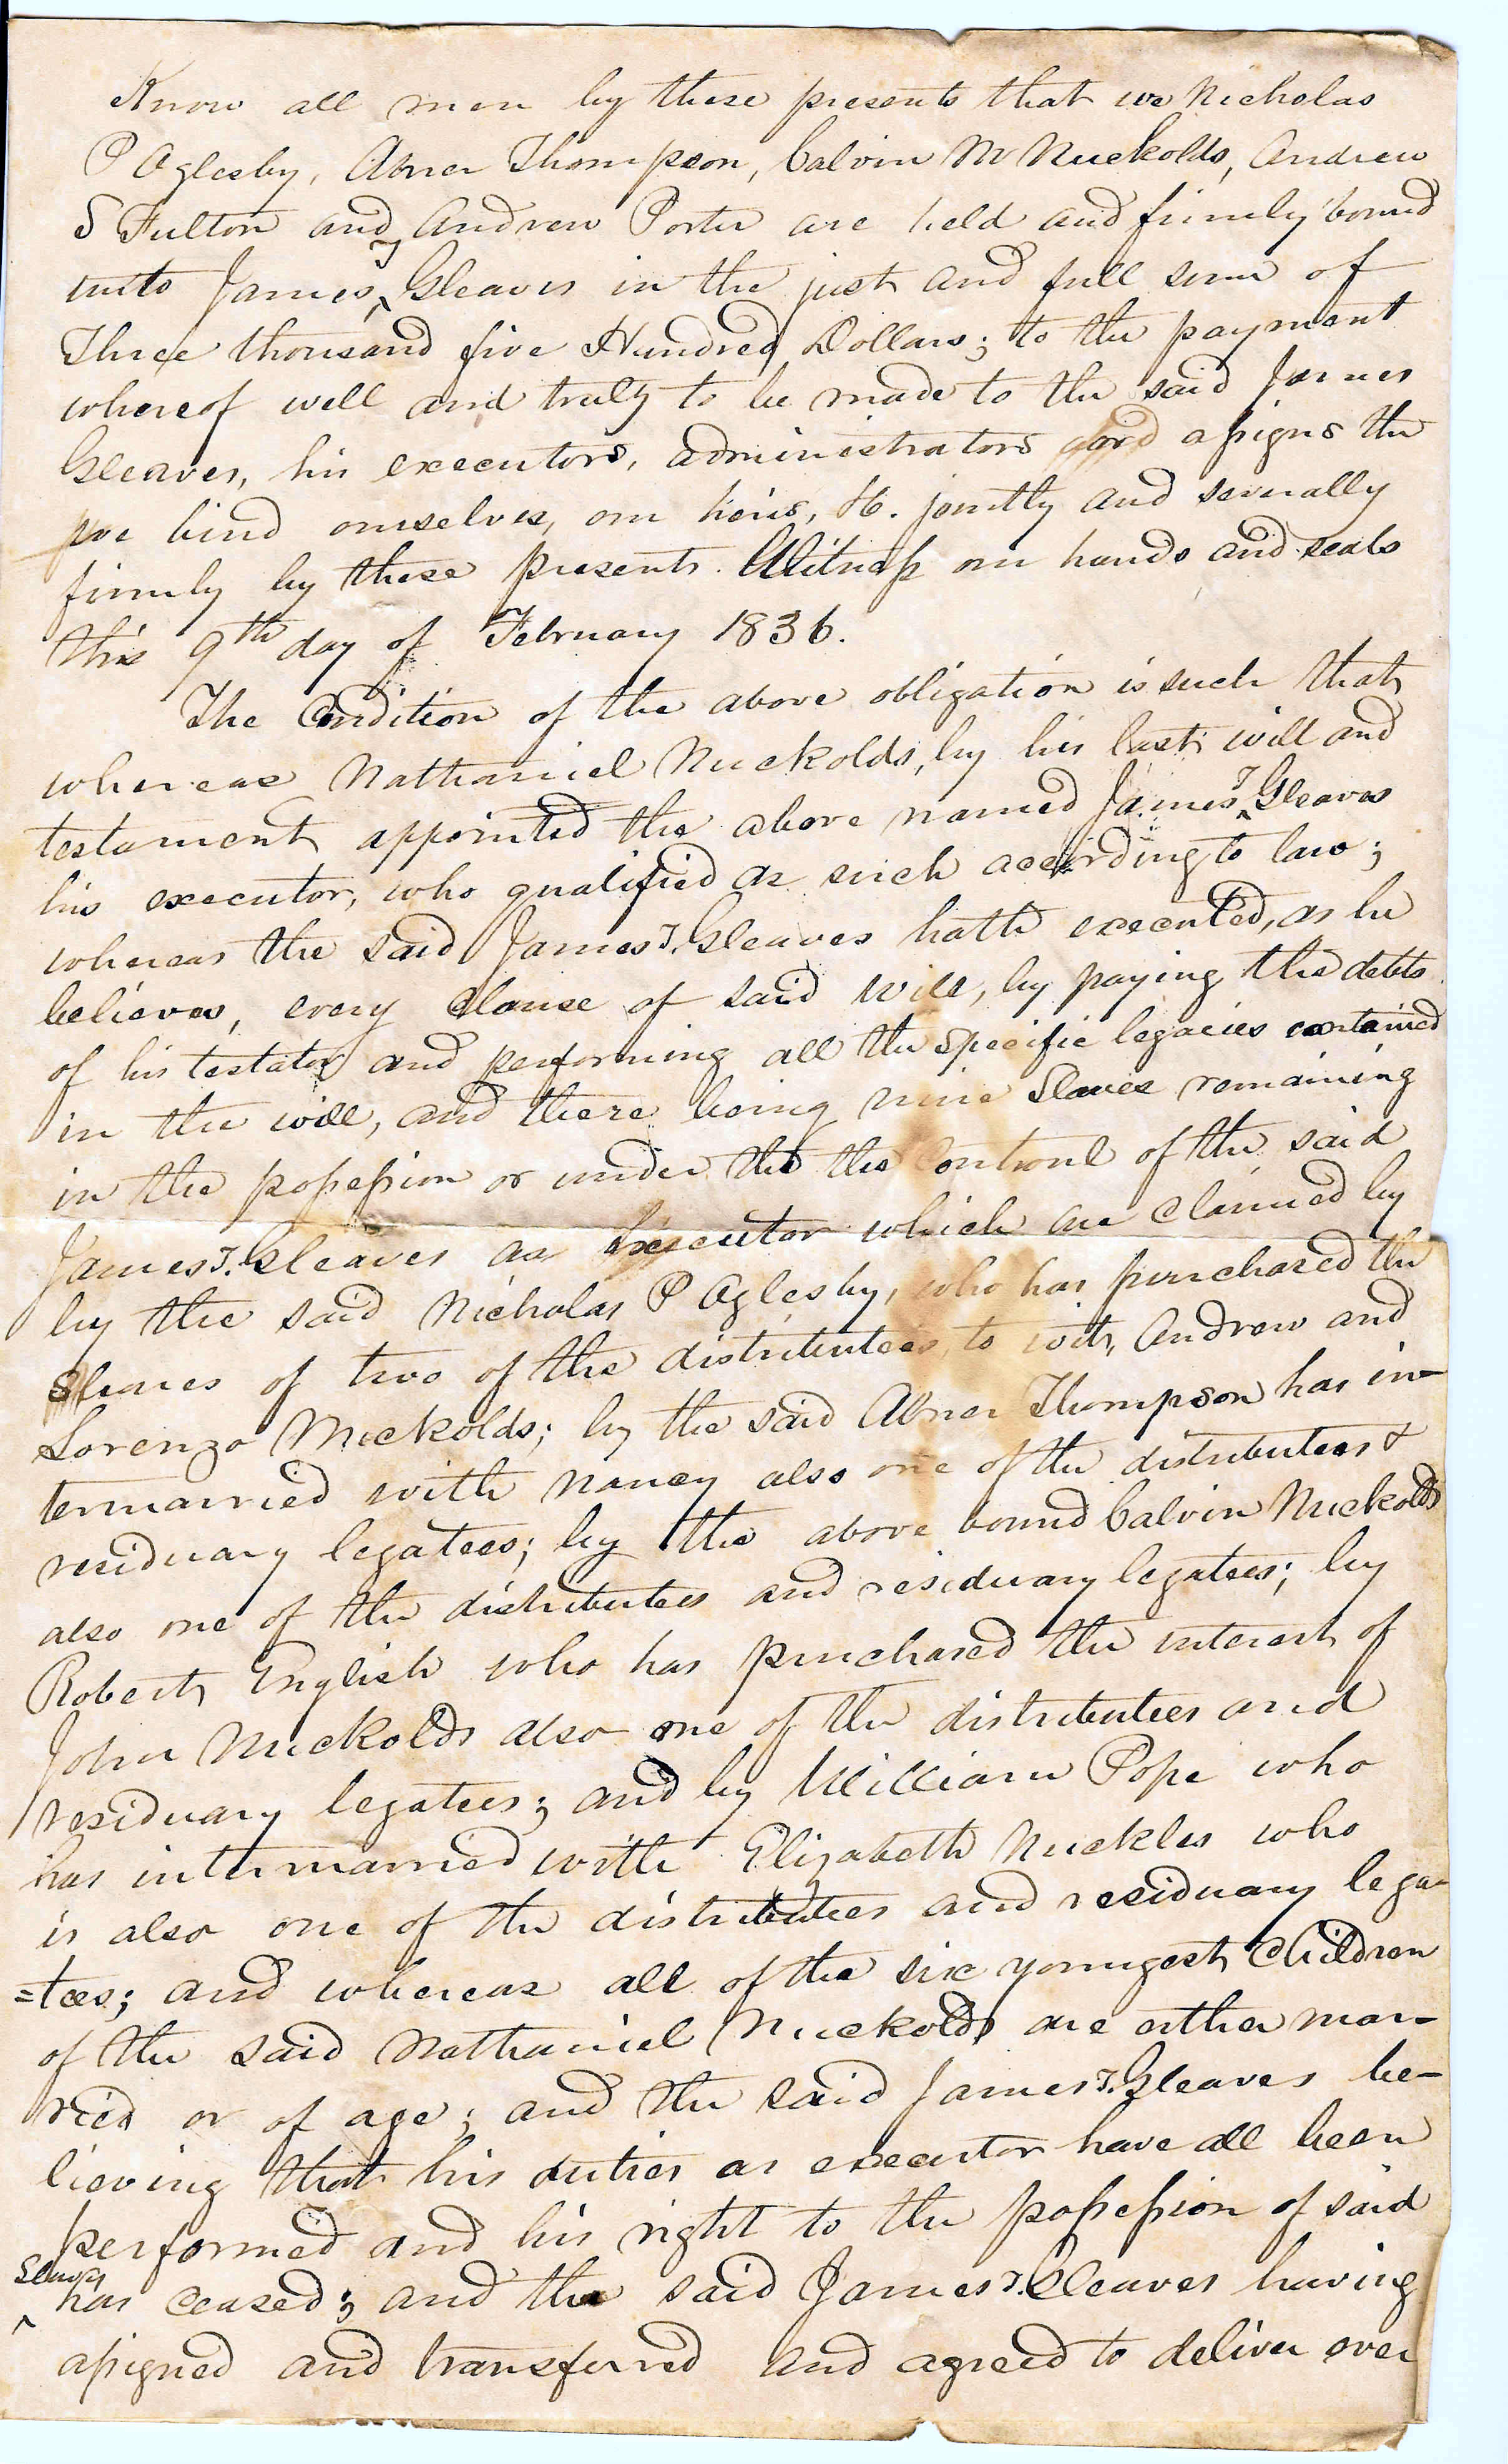 Know all men by these presents that we Nicholas
P Oglesby, Abner Thompson, Calvin M Nuckolds, Andrew
S Fulton and Andrew Porter are held and firmly bound
unto James T Gleaves in the just and full sum of
Three thousand five Hundred Dollars; to the payment
whereof well and truly to be made to the said James
Gleaves, his executors, administrators and assigns the
we bind ourselves, our heirs, &c. jointly and severally
firmly by these presents. Witness our hands and seals
this 9th day of February 1836.
The Condition of the above obligation is such that
whereas Nathaniel Nuckolds, by his last will and
testament appointed the above named James T Gleaves
his executor, who qualified as such according to law;
whereas the said James T. Gleaves hath executed, as he
believes, every clause of said will, by paying the debts
of his testator and performing all the specific legacies contained
in the will, and there being nine Slaves remaining
in the possession or under the the Controul of the said
James T. Gleaves as executor which are claimed by
by the said Nicholas P Oglesby, who has purchased the
shares of two of the distributees, to wit, Andrew and
Lorenzo Nuckolds; by the said Abner Thompson has in-
termarried with Nancy also one of the distributees &
residuary legatees; by the above bound Calvin Nuckolds
also one of the distributees and residuary legatees; by
Robert English who has purchased the interest of
John Nuckolds also one of the distributees and
residuary legatees; and by William Pope who
has intermarried with Elizabeth Nuckles who
is also one of the distributees and residuary lega-
=tees; and whereas all of the six youngest children
of the said Nathaniel Nuckolds are either mar-
ried or of age; and the said James T. Gleaves be-
lieving that his duties as executor have all been
performed and his right to the possession of said
slaves has ceased; and the said James T. Gleaves having
assigned and transferred and agreed to deliver over